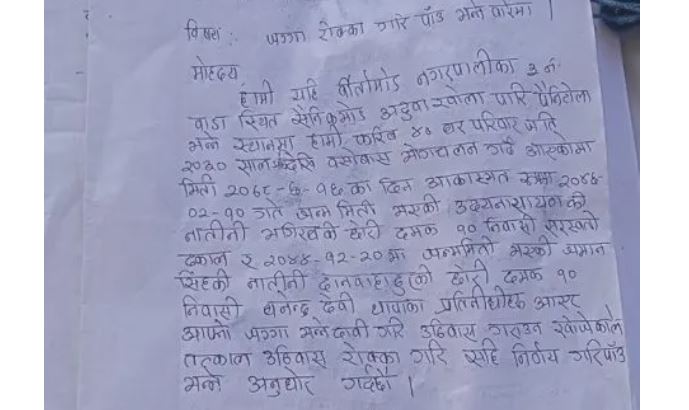 विषय :- जग्गा रोक्का गरि पाँउ भन्ने बारेमा |
मोहदय
हामी यहि विर्तामोड नगरपालीका ३ नं
वाडा स्थित सैनिकमोड अदुवाखोला पारि पैनिटोला
भन्ने स्थानमा हामी करिव ४० घर परिवार जति
२०३० साल देखि वसोवास भोगचलन गर्दै आएकोमा
मिती २०६८-६-१६ का दिन आकास्मत रूपमा २०४४-
०२-१० गते जन्म मिती भएकी उदयनारायण की
नातीनी भगिरथ की छोरी दमक १० निवासी सरस्वती
ढकाल र २०४४-१२-२० मा जन्ममिती भएकी जमान
सिंहकी नातीनी दानवाहादुरकी छोरी दमक १०
निवासी धनेन्द्र देवी थापाका प्रतिनीधीहरु आएर
आफ्नो जग्गा भन्ने दावी गरि उठिवास गराउन खोजेकोले
तत्काल उठिवास रोक्का गरि सहि निर्णय गरिपाँउ
भन्ने अनुरोध गर्दछौं |